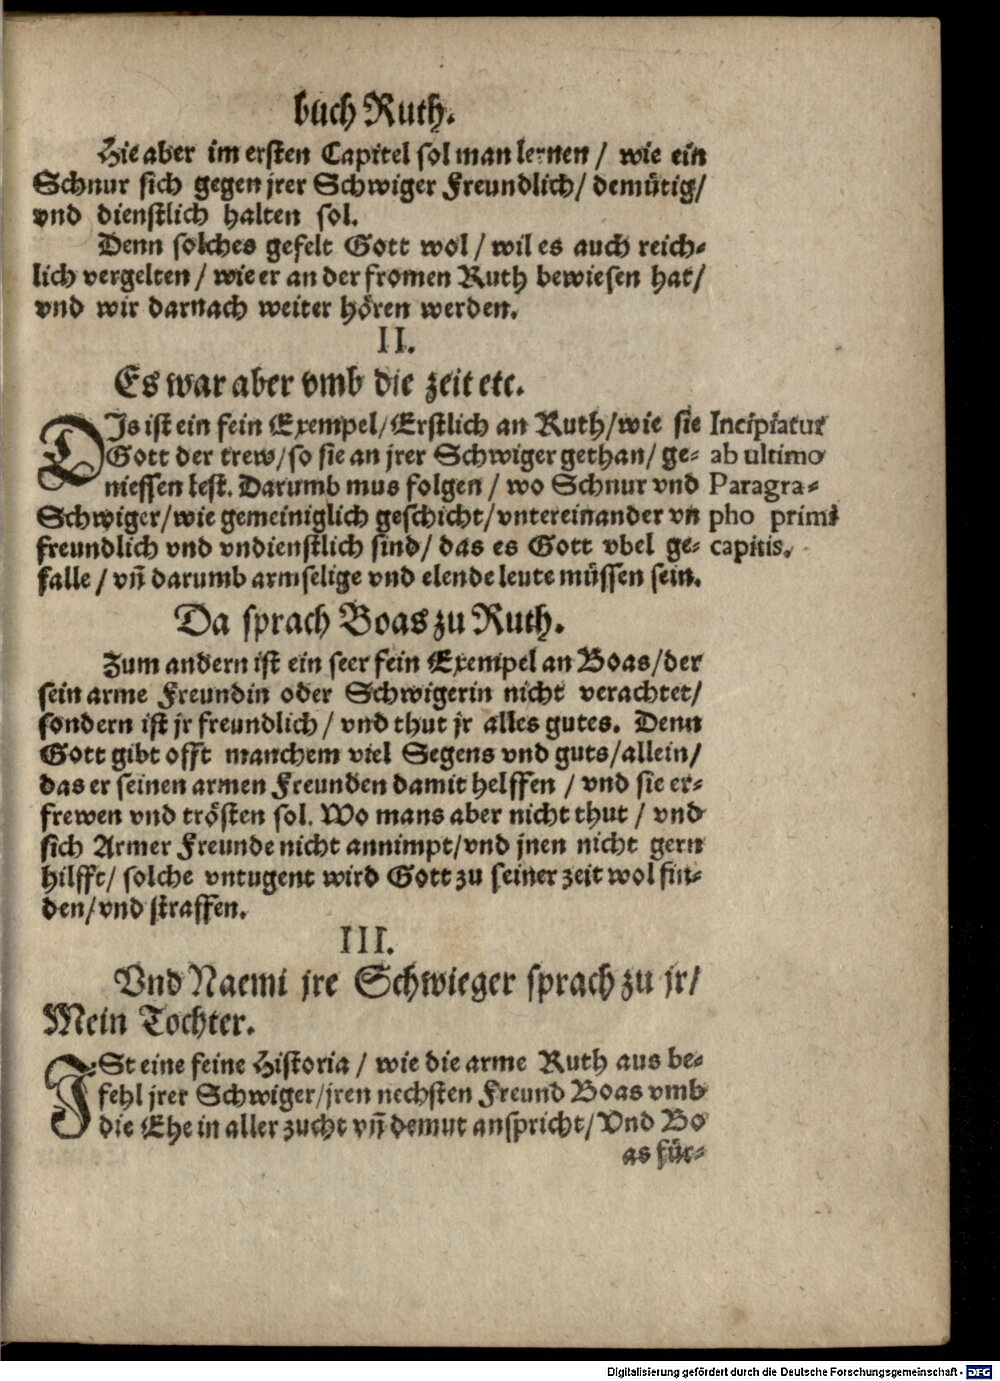 buch Ruth.
Hie aber im ersten Capitel sol man lernen / wie ein
Schnur sich gegen jrer Schwiger Freundlich / demütig /
vnd dienstlich halten sol.
Denn solches gefelt Gott wol / wil es auch reich-
lich vergelten / wie er an der fromen Ruth bewiesen hat /
vnd wir darnach weiter hören werden.
II.
Es war aber vmb die zeit etc.
DIs ist ein fein Exempel / Erstlich an Ruth / wie sie
Gott der trew / so sie an jrer Schwiger gethan / ge-
niessen lest. Darumb mus folgen / wo Schnur vnd
Schwiger / wie gemeiniglich geschicht / vntereinander vn
freundlich vnd vndienstlich sind / das es Gott vbel ge-
falle / vñ darumb armselige vnd elende leute müssen sein.
Incipiatur
ab ultimo
Paragra-
pho primi
capitis.
Da sprach Boas zu Ruth.
Zum andern ist ein seer fein Exempel an Boas / der
sein arme Freundin oder Schwigerin nicht verachtet /
sondern ist jr freundlich / vnd thut jr alles gutes. Denn
Gott gibt offt manchem viel Segens vnd guts / allein /
das er seinen armen Freunden damit helffen / vnd sie er-
frewen vnd trösten sol. Wo mans aber nicht thut / vnd
sich Armer Freunde nicht annimpt / vnd jnen nicht gern
hilfft / solche vntugent wird Gott zu seiner zeit wol fin-
den / vnd straffen.
III.
Vnd Naemi jre Schwieger sprach zu jr /
Mein Tochter.
ISt eine feine Historia / wie die arme Ruth aus be-
fehl jrer Schwiger / jren nechsten Freund Boas vmb
die Ehe in aller zucht vñ demut anspricht / Vnd Bo
as für-
Digitalisierung gefördert durch die Deutsche Forschungsgemeinschaft - DFG